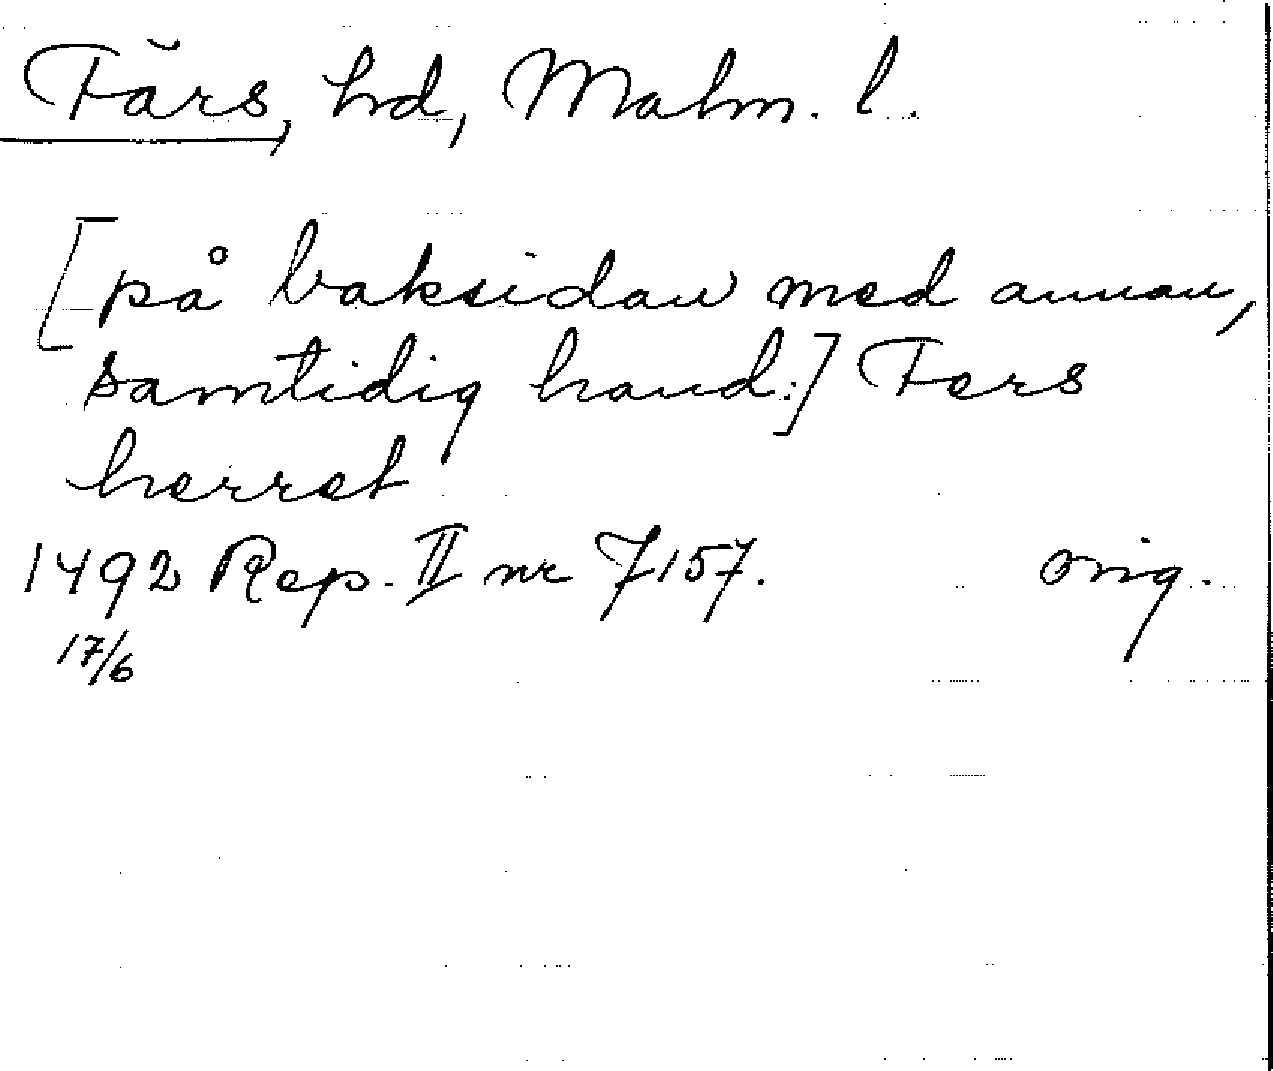 Färs, hd, Malm. l.
[på baksidan med annan,
samtidig hand:] Fers
herret
1492 Rep. II nr 7157. orig.
17/6